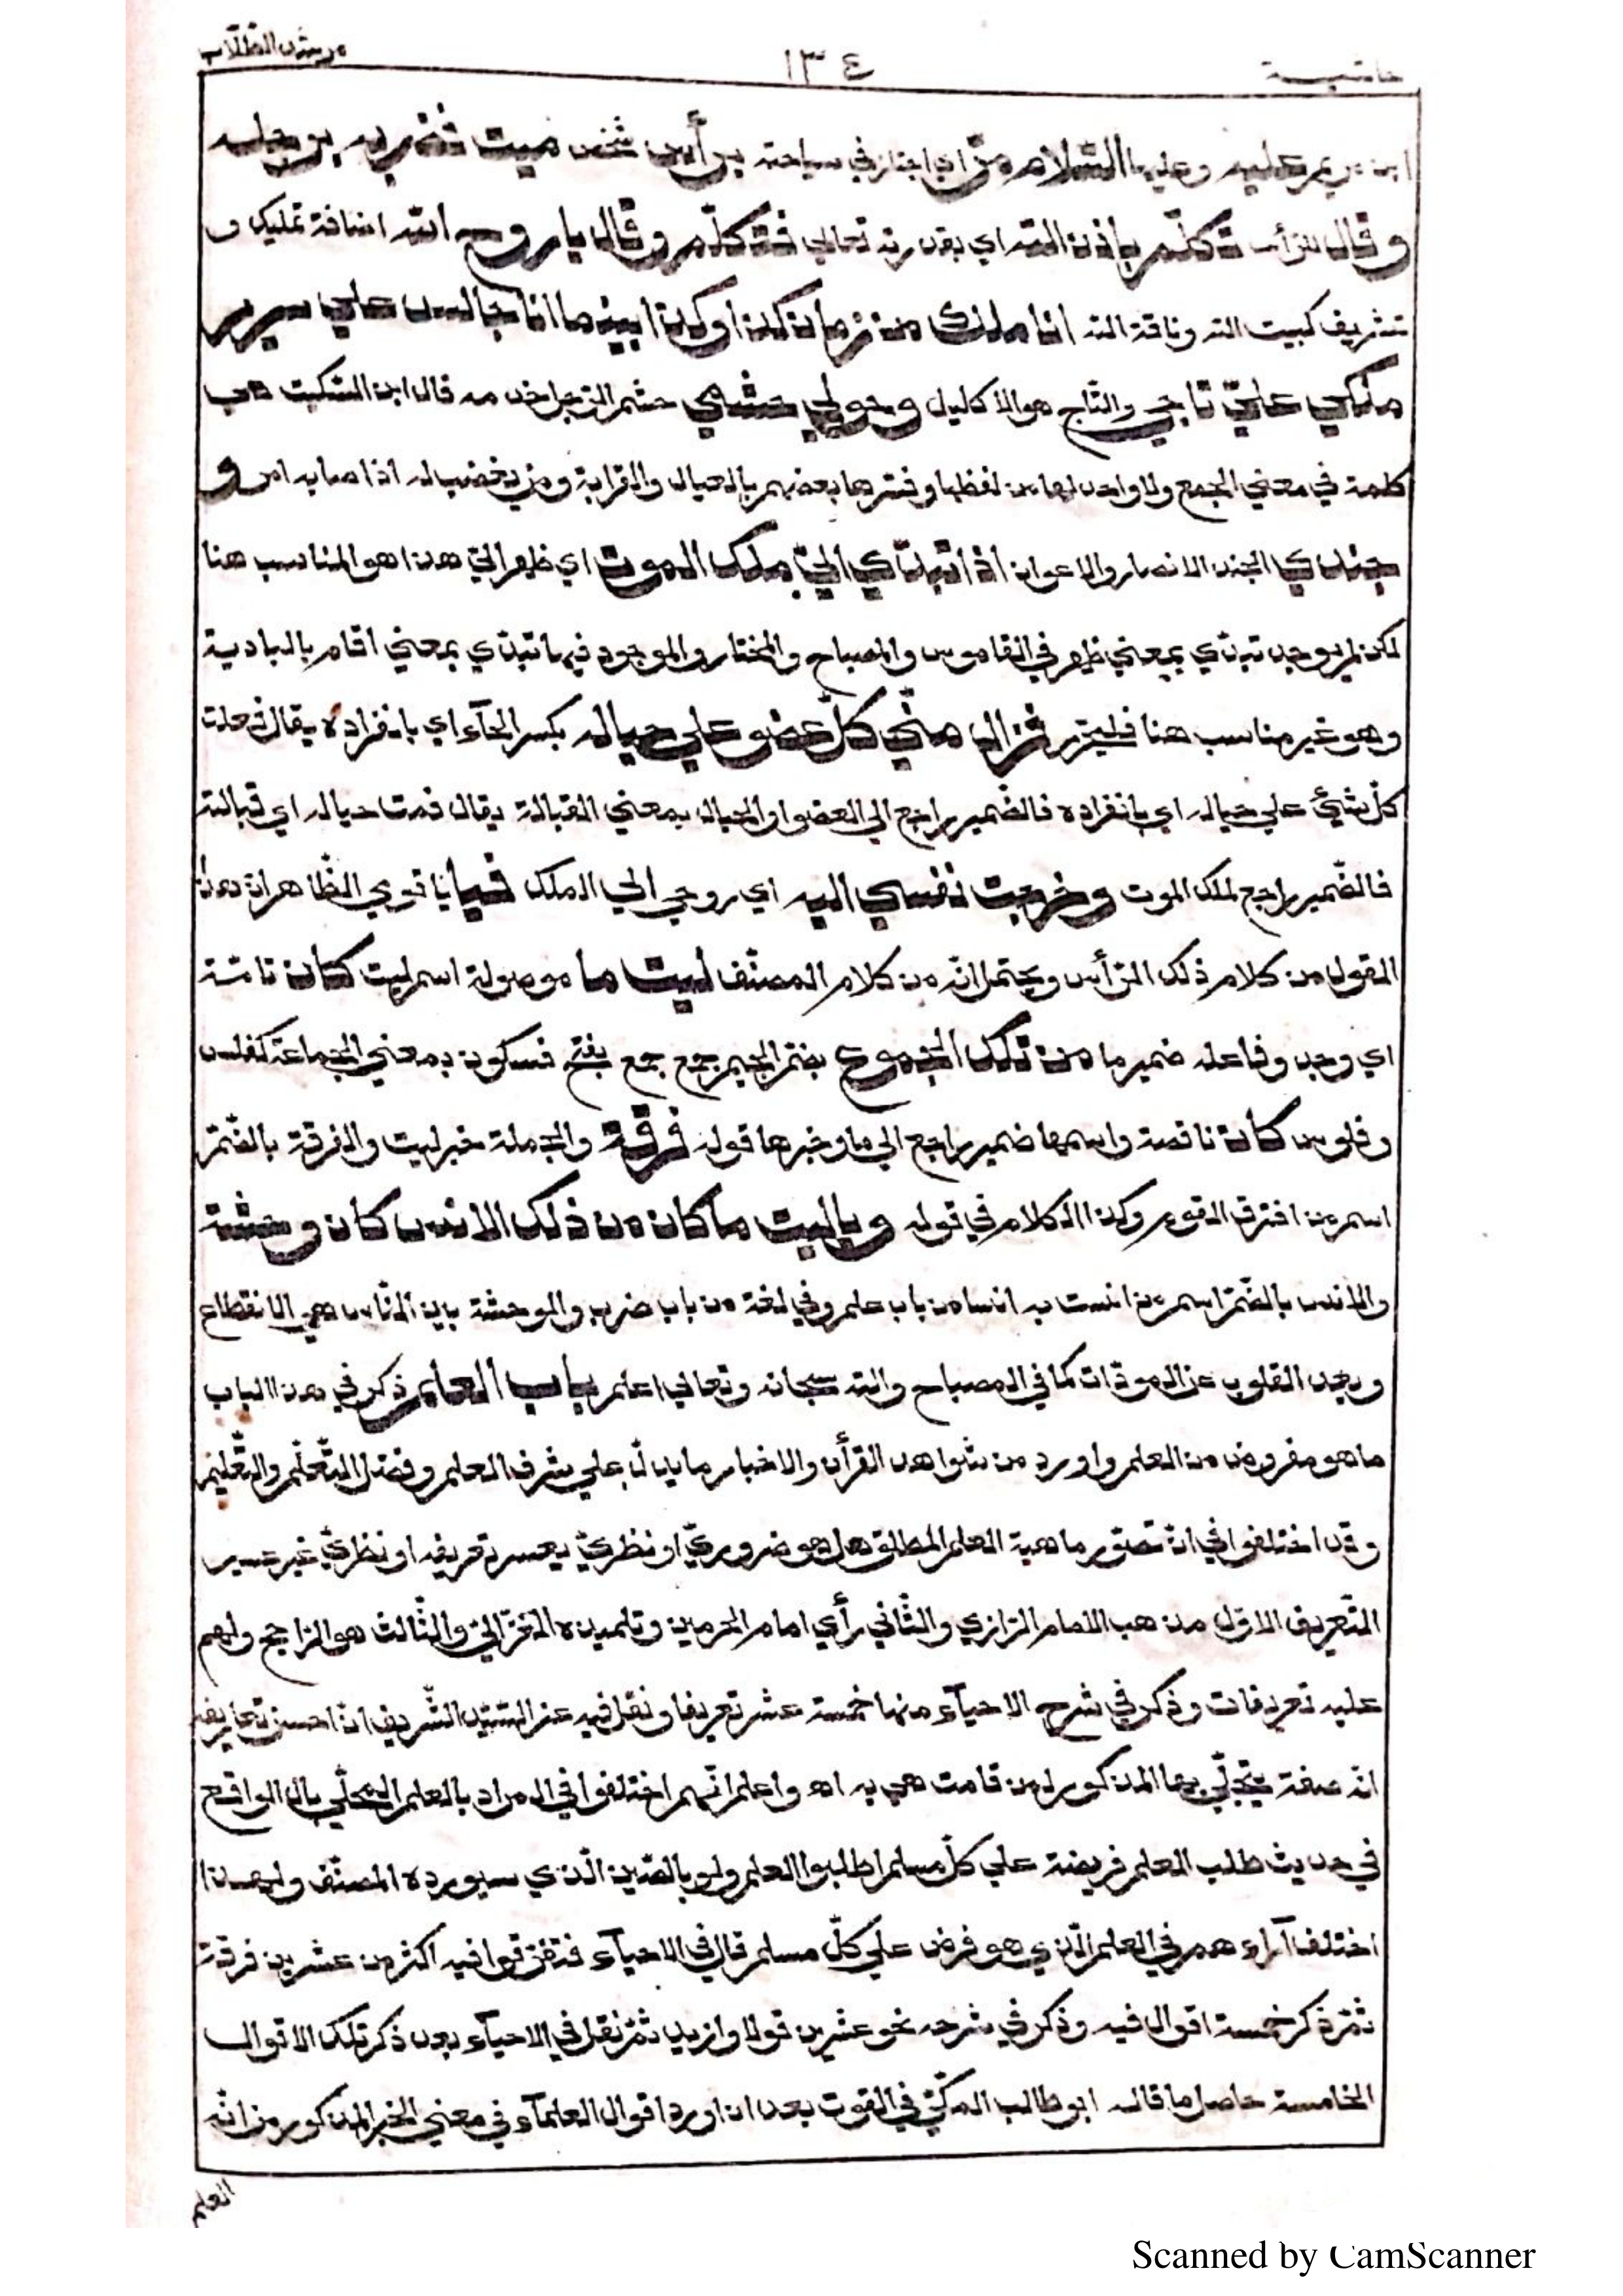 مرشد الطلاب
١٣٤
حاشية
ابن مريم عليه وعليها السّلام مرّ اي اجتاز في سياحته برأس شخص ميت فضربه برجله
وقال للرأس تكلّم باذن الله اي بقدرته تعالى فتكلّم وقال يا روح الله اضافة تمليك و
تشريف كبيت الله وناقة الله انا ملك من زمان كذا وكذا بينما انا جالس علي سرير
ملكي عليّ تاجي والتّاج هو الاكليل وحولي حشمي حشم الرّجل خدمه قال ابن السّكيت هي
كلمة في معني الجمع ولا واحد لها من لفظها وفسّرها بعضهم بالعيال والقرابة ومن يغضب له اذا اصابه امر و
جندي الجند الانصار والاعوان اذا تبدّي اليّ ملك الموت اي ظهر اليّ هذا هو المناسب هنا
لكن لم يوجد تبدّي بمعني ظهر في القاموس والمصباح والمختار والموجود فيها تبدّي بمعني اقام بالبادية
وهو غير مناسب هنا فليحرّر فزال منّي كلّ عضو علي حياله بكسر الحآء اي بانفراده يقال فعلت
كلّ شئ علي حياله اي بانفراده فالضّمير راجع الي العضو او الحيال بمعني القبالة يقال قمت حياله اي قبالته
فالضّمير راجع لملك الموت وخرجت نفسي اليه اي روحي الي الملك فيا يا قوم الظّاهر انّ هذا
المقول من كلام ذلك الرّأس ويحتمل انّه من كلام المصنّف ليت ما موصولة اسم ليت كان تامّة
اي وجد وفاعله ضمير ما من تلك الجموع بضمّ الجيم جمع جمع بفتح فسكون بمعني الجماعة كفلس
وفلوس كان ناقصة واسمها ضمير راجع الي ما وخبرها قوله فرقة والجملة خبر ليت والفرقة بالضّمّ
اسم من افترق القوم وكذا الكلام في قوله ويا ليت ما كان من ذلك الانس كان وحشة
والانس بالضّمّ اسم من انست به انسا من باب علم وفي لغة من باب ضرب والوحشة بين النّاس هي الانقطاع
وبعد القلوب عن المودّات كما في المصباح والله سبحانه وتعالي اعلم باب العلم ذكر في هذا الباب
ما هو مفروض من العلم واورد من شواهد القرأن والاخبار ما يدلّ علي شرف العلم وفضل التّعلّم والتّعليم
وقد اختلفوا في انّ تصوّر ماهية العلم المطلق هل هو ضروريّ او نظريّ يعسر تعريفه او نظريّ غير عسير
التّعريف الاوّل مذهب الامام الرّازي والثّاني رأي امام الحرمين وتلميذه الغزّاليّ والثّالث هو الرّاجح ولهم
عليه تعريفات وذكر في شرح الاحيآء منها خمسة عشر تعريفا ونقل فيه عن السّيّد الشّريف انّ احسن تعاريفه
انّه صفة يتجلّي بها المذكور لمن قامت هي به اه واعلم انّهم اختلفوا في المراد بالعلم المحلّي بال الواقع
في حديث طلب العلم فريضة علي كلّ مسلم اطلبوا العلم ولو بالصّين الّذي سيورده المصنّف ولهذا
اختلف آراءهم في العلم الّذي هو فرض علي كلّ مسلم قال في الاحيآء فتفرّقوا فيه اكثر من عشرين فرقة
ثمّ ذكر خمسة اقوال فيه وذكر في شرحه نحو عشرين قولا وازيد ثمّ نقل في الاحيآء بعد ذكر تلك الاقوال
الخامسة حاصل ما قاله ابو طالب المكّيّ في القوت بعد ان اورد اقوال العلمآء في معني الخبر المذكور من انّه
العلم
Scanned by CamScanner